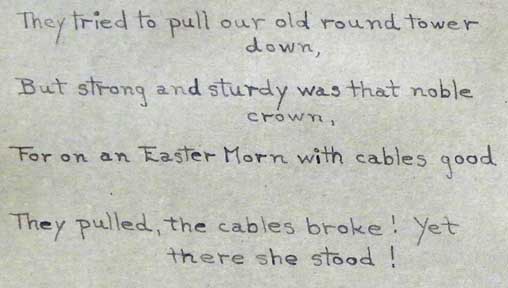 They tried to pull our old round tower
down,
But strong and sturdy was that noble
crown,
For on an Easter Morn with cables good
They pulled, the cables broke! Yet
there she stood!